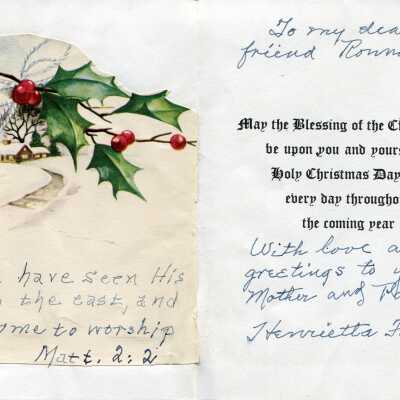 have seen His
the east, and
ome to worship
Matt. 2:2
To my dea
friend Ronn
May the Blessing of the C
be upon you and yours
Holy Christmas Day
every day througho
the coming year
With love a
greetings to
Mother and
Henrietta F